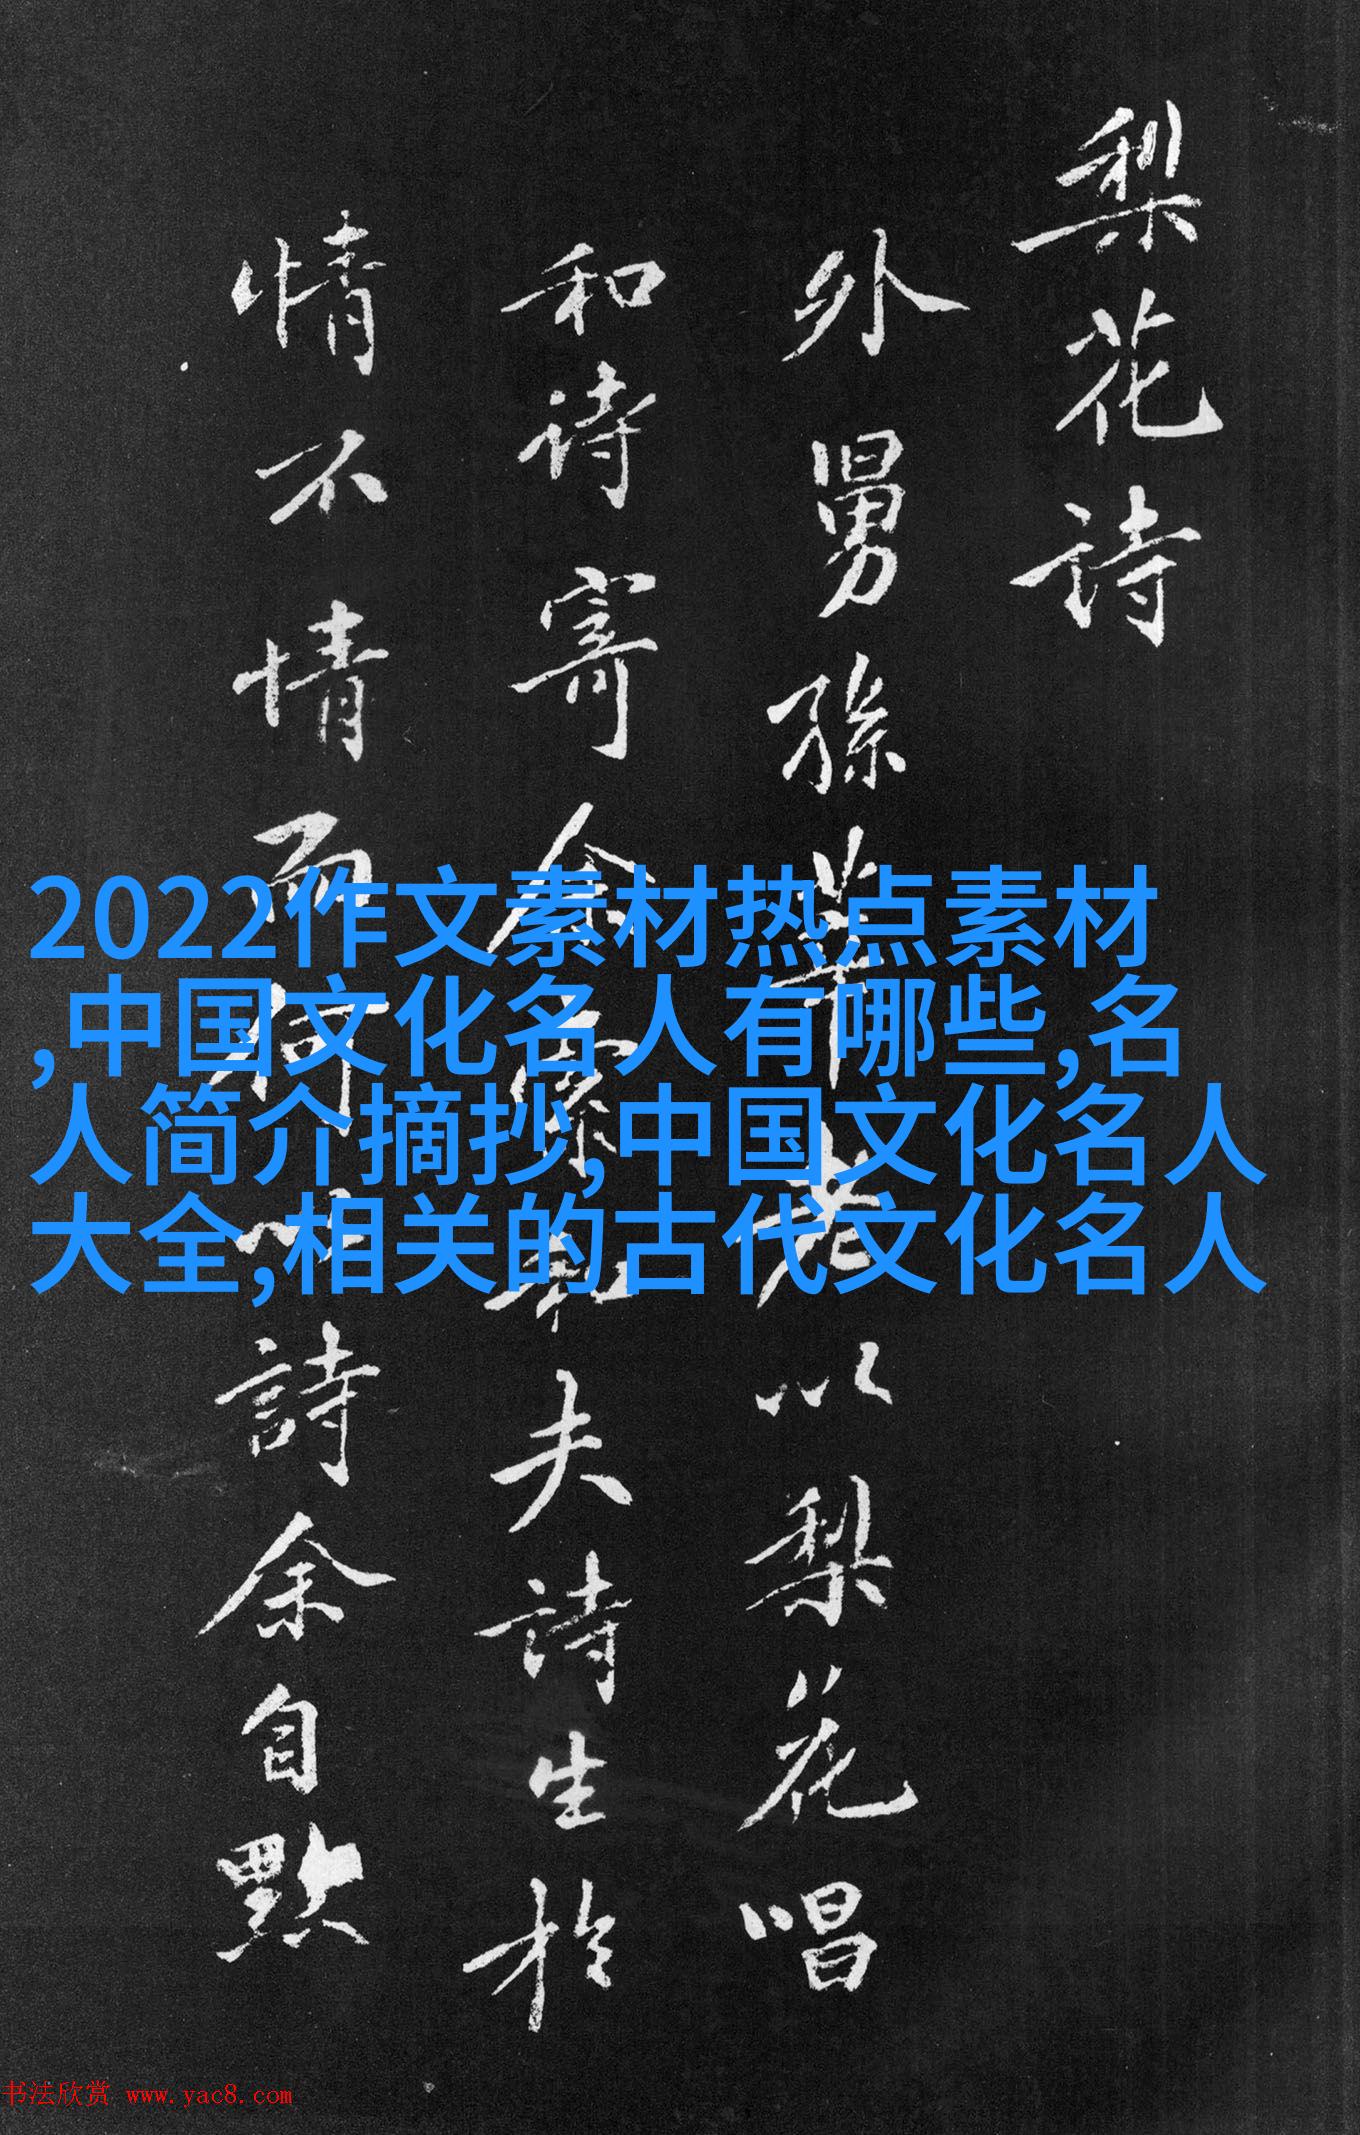 梨花詩
外舅孫莘老以梨花唱
和诗寄余余索和夫詩生於
情不情而何以詩余自黙
2022作文素材热点素材
,中国文化名人有哪些,名
人简介摘抄,中国文化名人
大全,相关的古代文化名人
书法欣赏 www.yac8.com